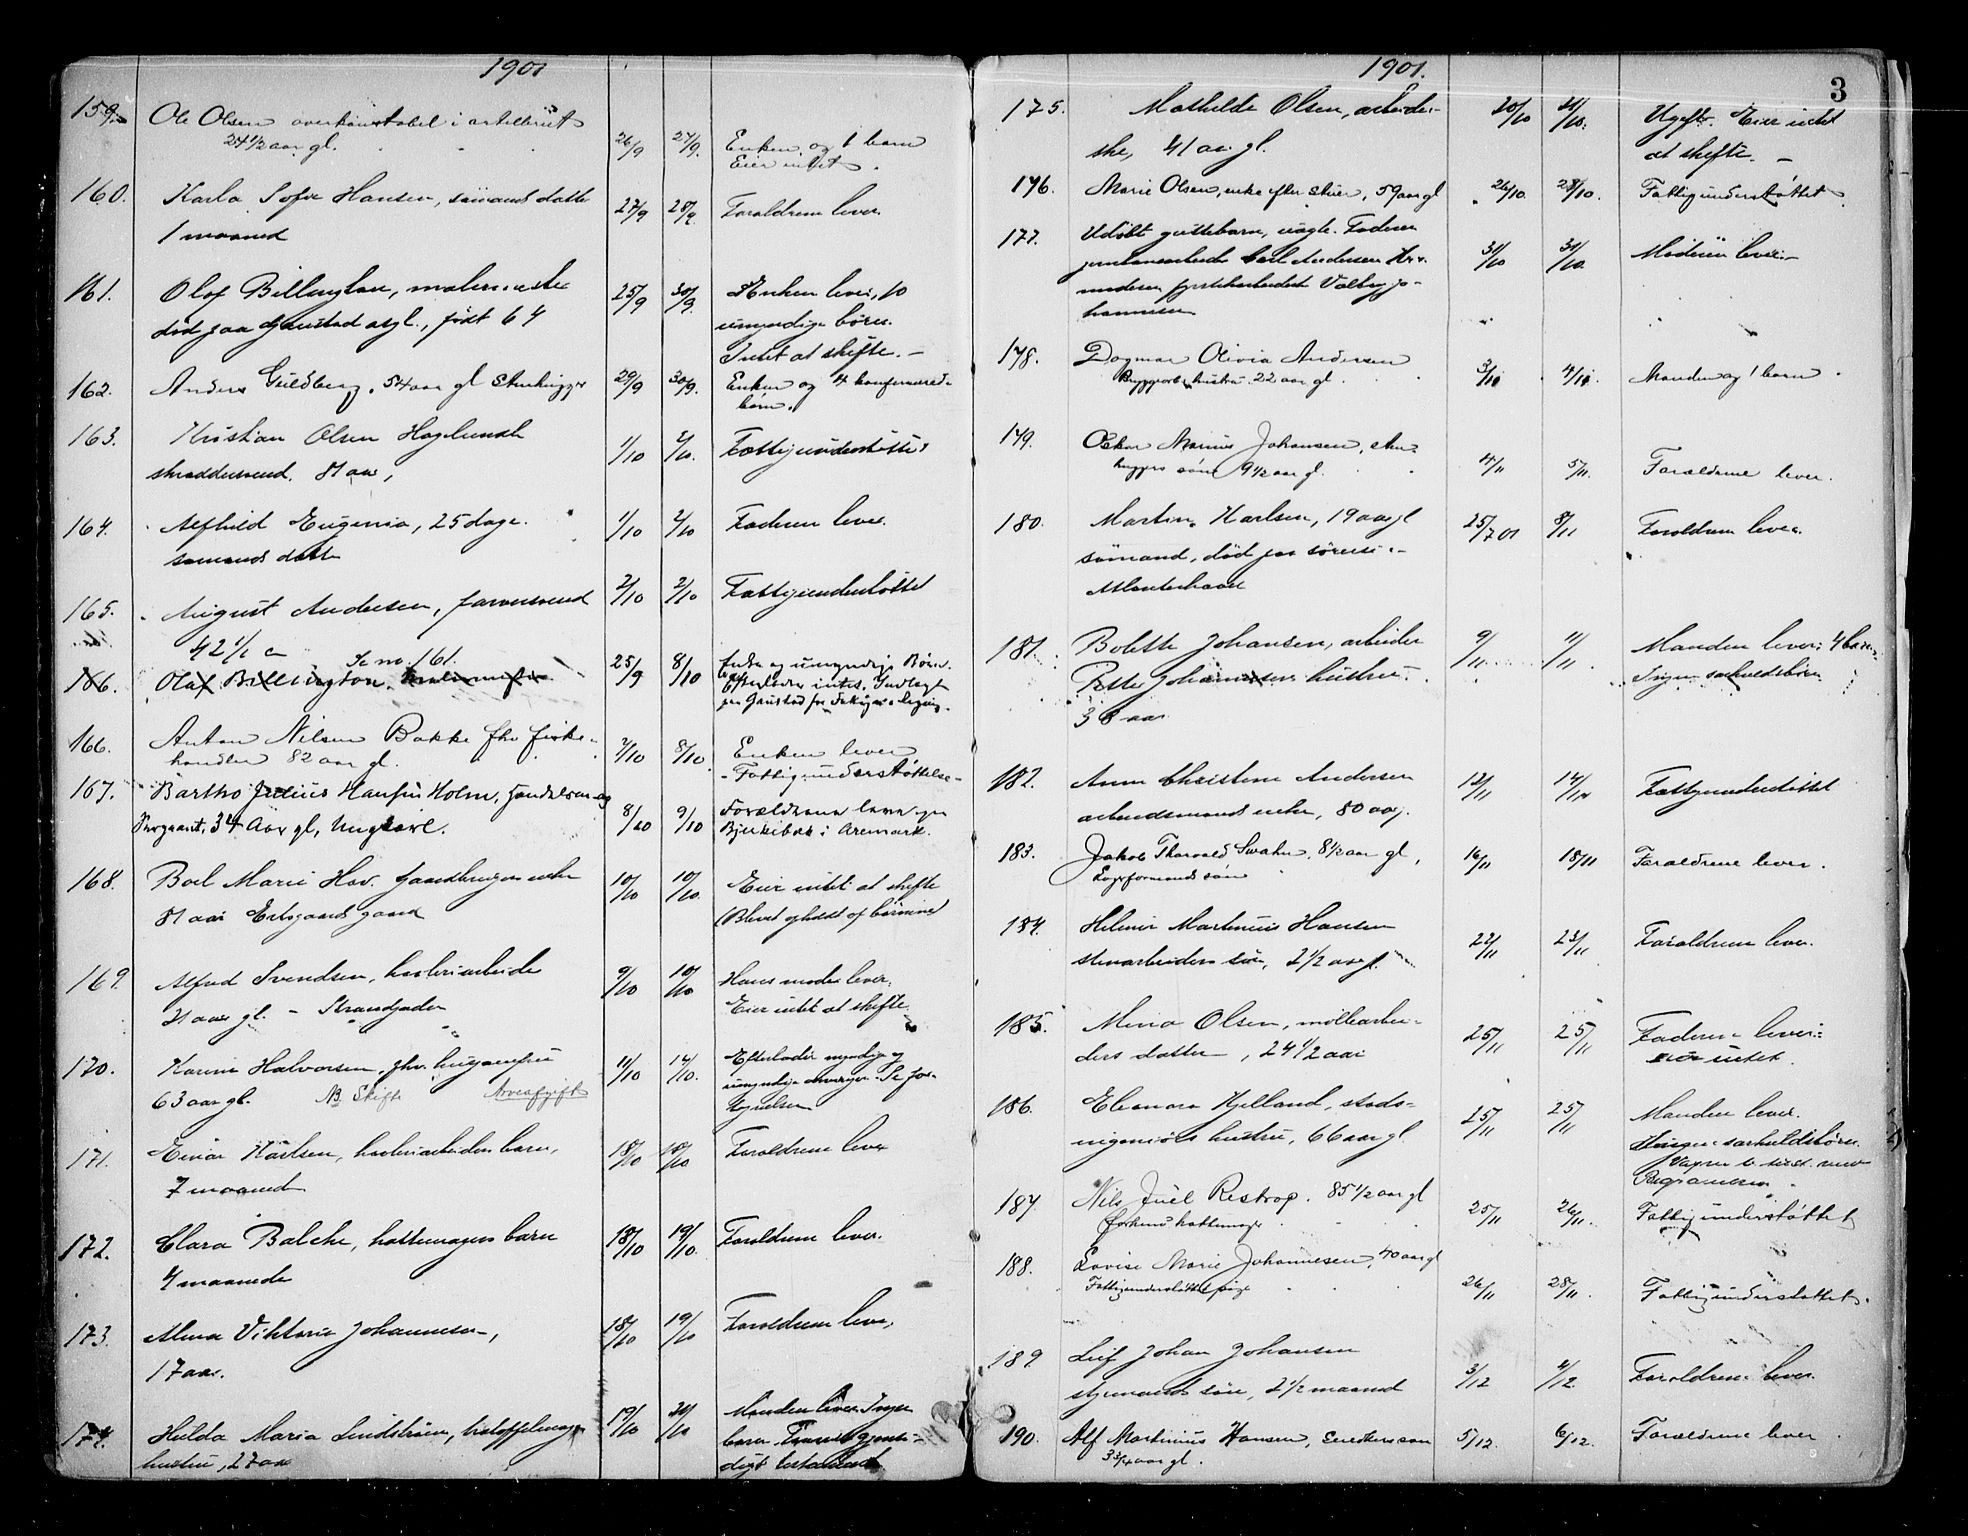 1901
159. Ole Olsen overkonstabel i artilleriet
24 1/2 aar gl. 26/9 27/9. Enken og 1 barn
Eier intet.
160. Karla Sofie Hansen, sömands datter 27/9 28/9. Foraldrene lever.
1 maaned
161. Olaf Billington, malermester 25/9 30/9. Enken lever, 10
död paa Gaustad asyl., födt 64 umyndige börn.
Intet at skifte. –
162. Anders Guldberg. 54 aar gl Stenhugger 29/9 30/9. Enken og 4 konfirmered.
börn.
163. Kristian Olsen Hagelunds 1/10 2/10. Fattigunderstöttet
skreddersvend. 81 aar,
164. Alfhild Eugenia, 25 dage. 1/10 2/10 Faderen lever.
sömands datter
165. August Andersen, farversvend 2/10 2/10 Fattigunderstöttet
42 1/2 a Se no. 161.
166. Olaf Billington. Malermester 25/9 8/10 Enke og umyndige Börn.
Efterlader intet. Indlagt
paa Gaustad for Fattigv. Regning.
166. Anton Nilsen Bakke fhv fiske-
handler 82 aar gl. 7/10 8/10. Enken lever
– Fattigunderstøttelse –
167. Bartho Julius Hansen Holm, Handelsmand og
Sergeant, 34 Aar gl, Ungkarl. 8/10 9/10 Forældrene lever paa
Bjerkebæk i Aremark.
168. Boel Marie Hov. Handbergers enke 10/10 10/10. Eier intet at skifte
81 aar Erlsgaards gaard (Blevet opholdt af börnene)
169. Alfred Svendsen, hövleriarbeider 9/10 10/10 Hans moder lever.
21 aar gl. – Strandgaden Eier intet at skifte
170. Karine Halvorsen, fhv. huusjomfru 11/10 14/10. Efterlader myndige og
63 aar gl. NB Skifte Arveafgift umyndige arvinger. Se for-
segnelsen
171. Einar Karlsen, hövleriarbeiders barn, 18/10 18/10 Foraldrene lever
7 maaned
172. Clara Balche, hattemagers barn 18/10 19/10. Foraldrene lever.
4 maaneder
173. Alma Viktoria Johannesen, 18/10 19/10 Foraldrene lever,
17 aar.
174. Hulda Maria Lindström, tröffelmager 19/10 21/10 Manden lever. Ingen
hustru, 27 aar barn
1901.
3
175. Mathilde Olsen, arbeider- 20/10 21/10. Ugift. Eier intet
ske, 41 aar gl. at skifte. –
176. Marie Olsen, enke efter Skier, 59 aar gl 26/10. 28/10. Fattigunderstøttet
177. Udöbt guttebarn, uægte. Faderen
Carl Andersen 31/10 31/10. Moderen lever. –
Valborg Jo-
hannesen
178. Dagmar Olivia Andersen
Bryggeriarb. hustru. 22 aar gl. 3/11 4/11. Manden og 1 barn.
179. Oskar Marius Johansen, sten-
huggers sön 9 1/2 aar gl. 4/11 5/11. Forældrene lever.
180. Martin Karlsen, 19 aar gl 25/7 01 8/11 Foraldrene lever.
sömand, död paa söreise i
Atlanterhavet
181. Bolette Johansen, arbeider 9/11 11/11 Manden lever: 4 börn.
Petter Johansens hustru. Ingen særkuldsbörn
38 aar
182. Anne Christine Andersen 12/11 14/11 Fattigunderstöttet
arbeidsmands enke, 80 aar g.
183. Jakob Thorvald Swahn, 8 1/2 aar gl, 16/11 18/11 Foraldrene lever.
Logeformands sön
184. Helmer Martinius Hansen 22/11 23/11 Foraldrene lever.
stenarbeiders sön, 2 1/2 aar gl.
185. Mina Olsen, möllearbei- 25/11 25/11 Faderen lever:
ders datter, 24 1/2 aar eier intet.
186. Eleonora Kjelland, stads- 25/11 25/11 Manden lever.
ingeniörs hustru, 66 aar gl. Ingen særkuldsbörn.
187. Nils Juel Restrop. 85 1/2 aar gl 25/11 26/11. Fattigunderstøttet
forhenv. hattemager
188. Lovise Marie Johannesen, 40 aar gl
Fattigunderstöttet pige 26/11 28/11. Fattigunderstøttet.
189 Leif Johan Johansen 3/12 4/12. Foraldrene lever.
styrmands sön, 2 1/2 maaned
190. Alf Martinius Hansen, Snedkers sön 5/12. 6/12. Foraldrene lever.
3 3/4 aar gl.